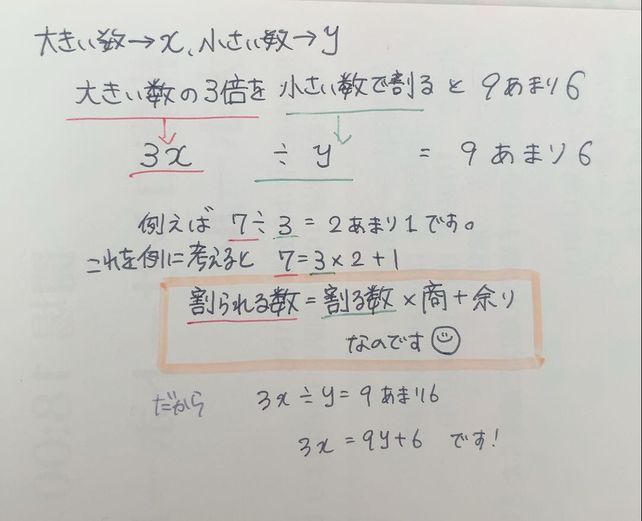 大きい数→x、小さい数→y
大きい数の3倍を 小さい数で割る と 9あまり6
3x ÷ y = 9 あまり 6
例えば 7÷3=2あまり1です。
これを例に考えると 7=3×2+1
割られる数=割る数×商+余り
なのです
だから 3x÷y=9あまり6
3x=9y+6 です!